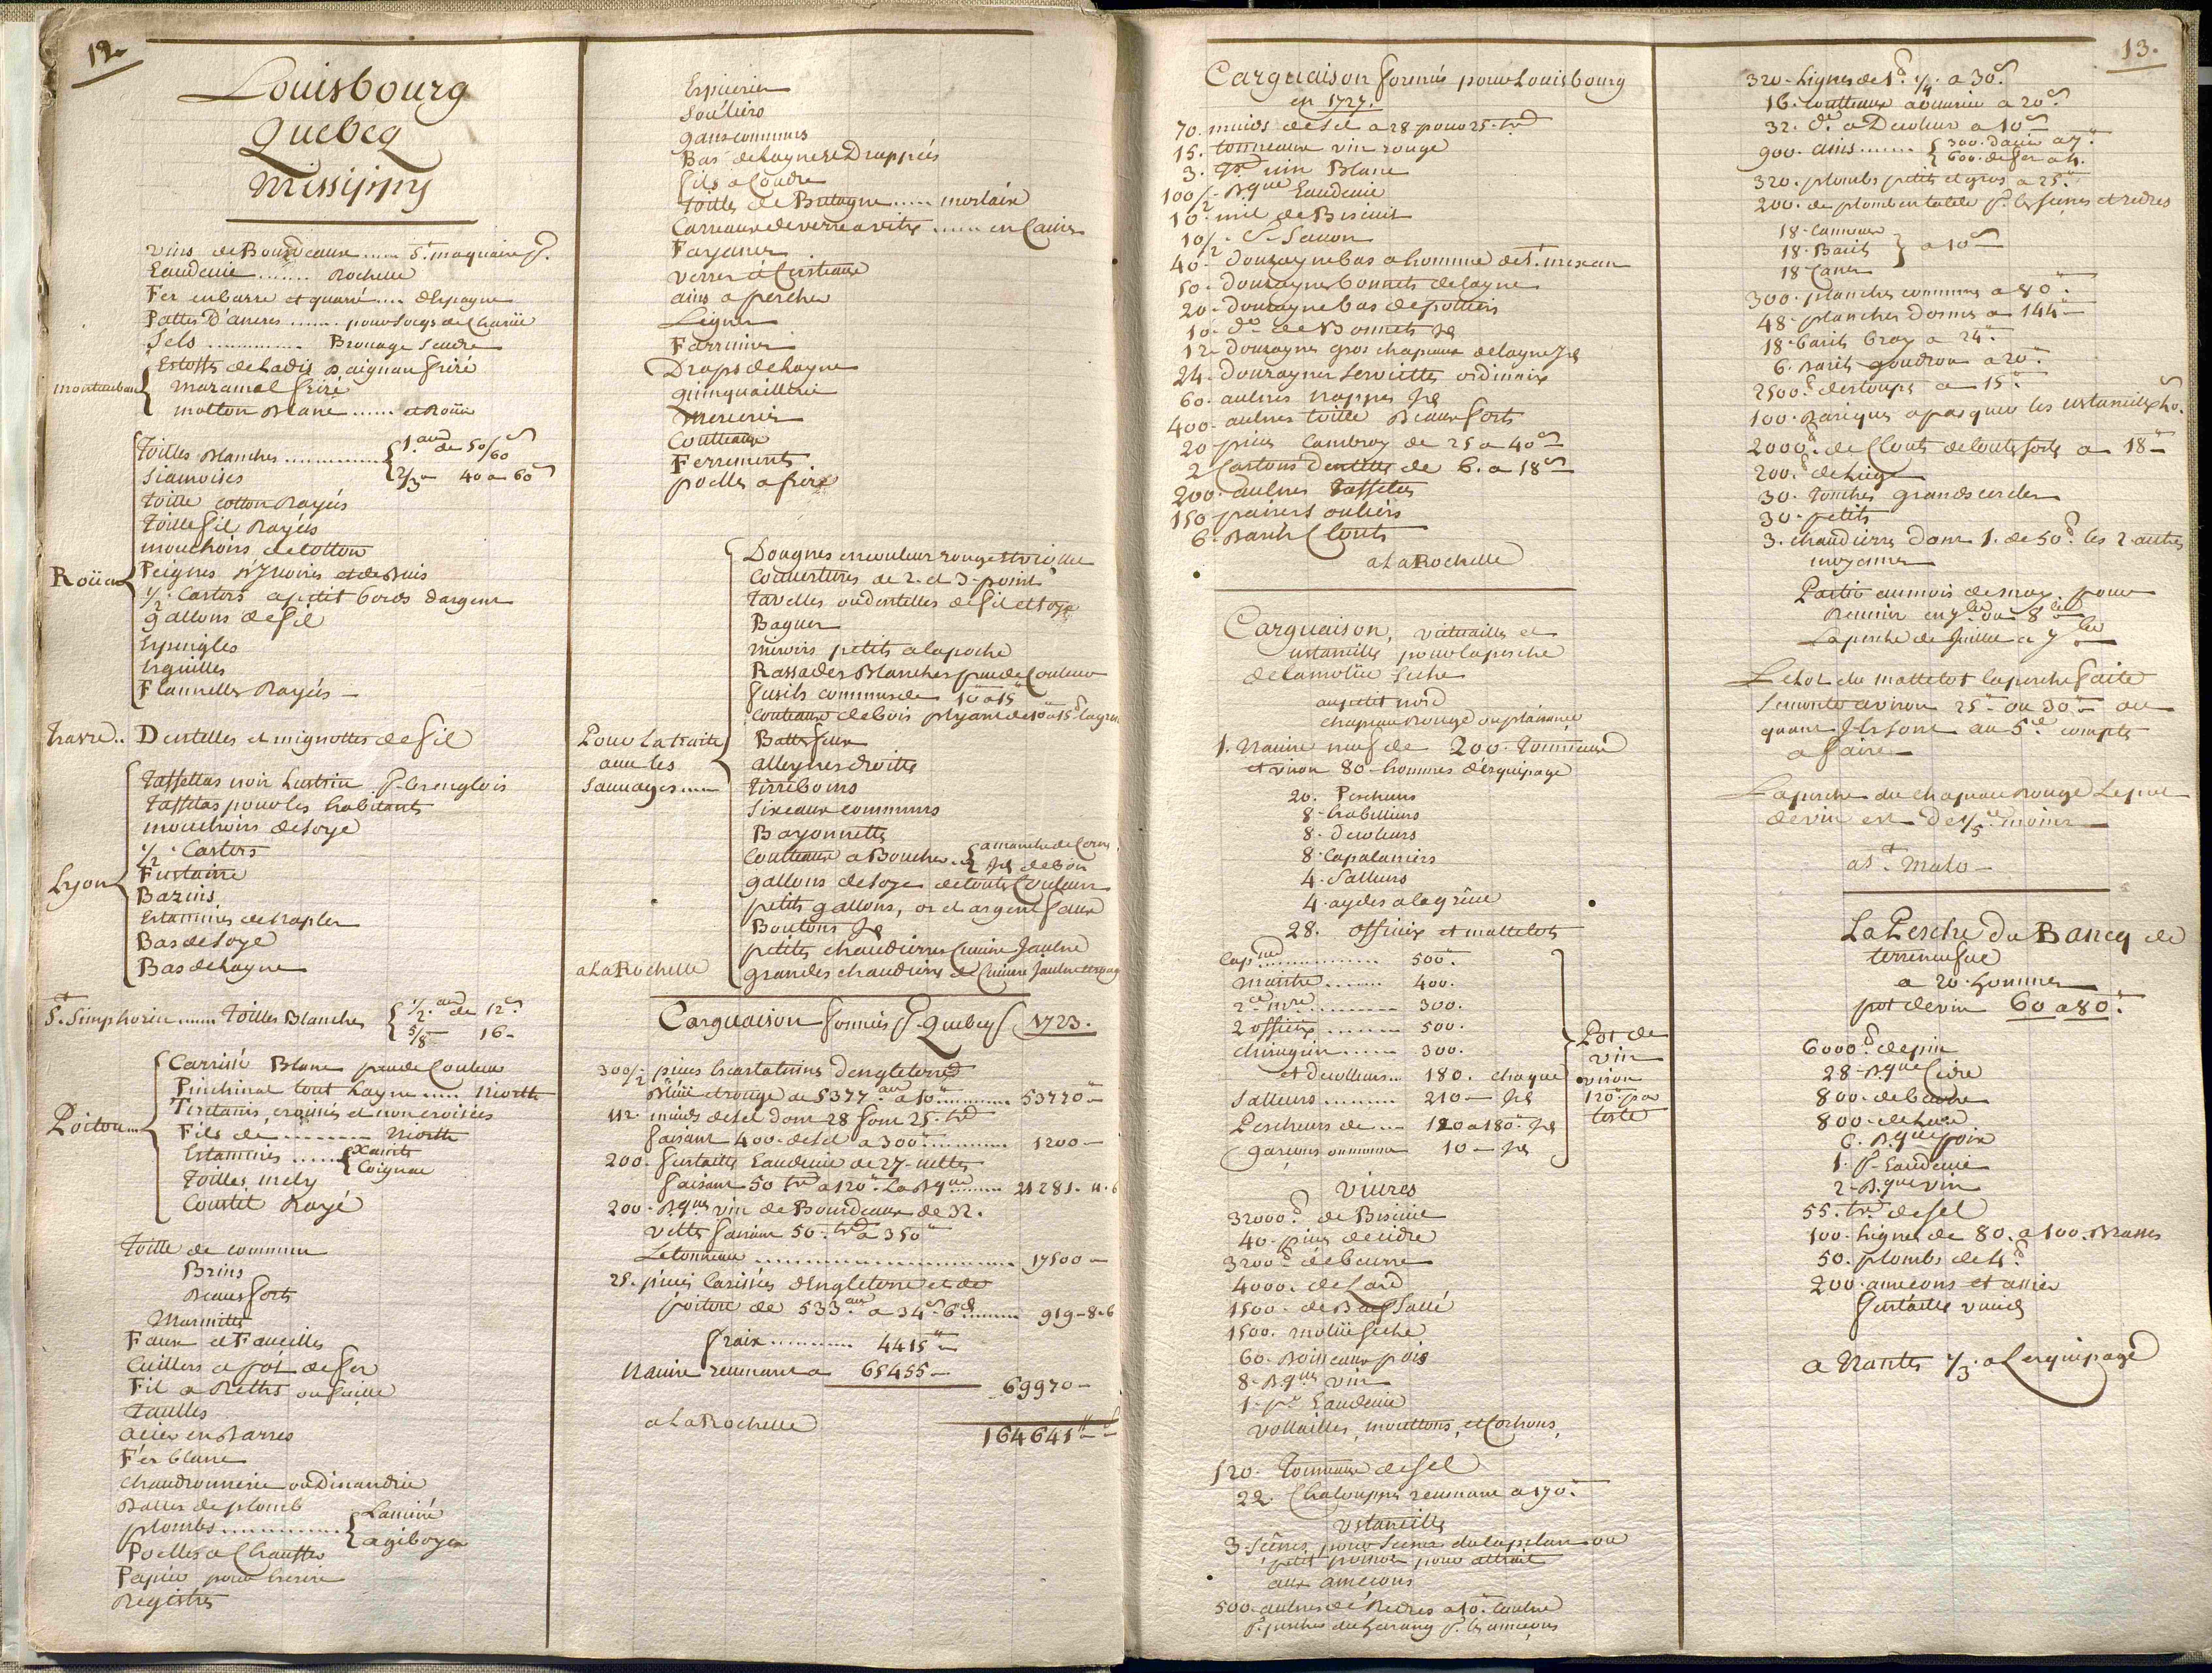 12.
Louisbourg
Quebecq
Missisippy
vins de Bourdeaux ...... St. maquaire
Eaudevie ........ Rochelle
Fer en barre et quarré .... d'Espagne
Pattes D'ancres ....... pour Socqs de Charüe
Sels ............. Brouage Seudre
montauban
Estoffes de Cadis & aignan frizé
Maramal frizé
molton Blanc ...... et Roüen
Roüen
Toilles Blanches ............. 1. au de 50/60 s
Siamoises 2/3 40 a 60 s
Toille cotton Rayés
Toille fil Rayés
mouchoirs de cotton
Peignes d'Yvoires et de Buis
1/2 Castors a petit bords dargent
gallons de fil
Espingles
Esguilles
Flannelles Rayés
havre .. Dentelles et mignottes de fil
Lyon
Taffettas noir Lustrin P. les englois
Taffetas pour les habitants
mouchoirs de soye
1/2 Castors
Futaine
Bazins
Estamines de naples
Bas de soye
Bas de Layne
St. Simphorien ..... Toilles Blanches 1/2 au de 12 s
5/8 16 -
Poitou ...
Carrisé Blanc peu de Couleur
Pinchinat tout Layne ..... Niorth
Tirtanis, croisés et non croisées
Fils de ......... Niorth
Estamines ..... Xaintes
Coignac
Toilles mely
Couttil Rayé
Toille de commun
Brins
Beaufforts
Marmittes
Faux et Faucilles
Cuillers a pot de fer
Fil a Rethz ou ficelle
Taulles
Acier en Barres
Fer blanc
chaudronnerie ou Dinandrie
Balles de plomb
plombs ............. Laminé
a giboyer
Poelles a Chauffer
Papier pour Escrire
Registres
Espiceries
Souliers
gans communs
Bas de Laynes Drappés
fils a Coudre
Toilles de Bretagne ..... morlaix
Carreaux de verre a vitre ..... en Caisse
Fayance
verres et Cristeaux
ains a pescher
Lignes
Farrines
Draps de Layne
quinquaillerie
Mercerie
Coutteaux
Ferrements
poelles a frire
Pour la traite
avec les
Sauvages .....
Dougnes en couleur rouge et violle
Couvertures de 2. et 3. point
Tavelles ou dentelles de fil et soye
Bagues
miroirs petits a la poche
Rassades Blanches peu de Couleur
fusils communs de 10 a 15
Couteaux de bois pliants de 10 a 15 la gros
Battefeux
alleynes droittes
Tirreboires
Sizeaux communs
Bayonnettes
Coutteaux a Boucher .. a manche de Corne
Id. de bois
gallons de soye de toutte Couleur
petits gallons, or et argent faux
Boutons Id
petites chaudieres Cuivre Jaulne
grandes chaudieres de Cuivre Jaulne
a La Rochelle
Carguaison formée P. Quebecq 1723.
300/2 pieces Escarlatines dengleterre
Bleüe et rouge de 5377 au a 10 ........ 53770 -
112. muids de sel dont 28 font 25. tx
faisant 400. de sel a 300 ........ 1200 -
200. fustailles Eaudevie de 27 veltes
faisant 50 tx a 120 La Bque ....... 21281. 11. 6
200. Bques vin de Bourdeaux de 32.
veltes faisant 50. tx a 350
Le tonneau .................... 17500 -
25. pieces Carisées dEngleterre et de
poitou de 533 au a 34 s 6 d ....... 919 - 8. 6
fraix .......... 4415
Navire revenant a 65455 -
69970 -
a La Rochelle
164641
13.
Carguaison formée pour Louisbourg
en 1727.
70. muids de sel a 28 pour 25. tx
15. tonneaux vin rouge
3. Id vin Blanc
100/2. Bque Eaudevie
10. mil de Biscuit
10/2. C. Savon
40. Douzaynes bas a homme de St. mexan
50. Douzaynes bonnets de Layne
20. Douzaynes bas de poitiers
10. do de Bonnets Id
12 Douzaynes gros chapeaux de Layne Id
24. Douzaynes serviettes ordinaire
60. aulnes nappes Id
400. aulnes toille Beaufforts
20 pieces Cambray de 25 a 40 s
2 Cartons Dentelles de 6. a 18 s
200. aulnes Taffetas
150 paires souliers
6. Barils Clouts
a La Rochelle
Carguaison, victuailles et
ustancilles pour la pesche
de la moliie seche
au petit nord
chapeau rouge ou plaisance
1. Navire neuf de 200. Tonneaux
et viron 80 hommes d'esquipage
20. Pescheurs
8. habilleurs
8. decoleurs
8. Capalaniers
4. Salleurs
4. aydes a la grave
28. officiers et mattelots
Capne .......... 500.
maitre ........ 400.
2e. mre ......... 300.
2 officiers ....... 500.
chirugien ...... 300.
et decolleurs .. 180. chaque
Salleurs ........ 210 - Id
Pescheurs de ... 120 a 180. Id
garçons ou mousse 10 - Id
Pot de
vin
viron
120 par
teste
Vivres
32000 d de Biscuit
40. pieces de cidre
3200 d de beurre
4000. de Lard
1500. de Bœuf Sallé
1500. moliie seche
60. Boisseaux pois
8. Bques vin
1. pe Eaudevie
vollailles, mouttons, et Cochons,
120. Tonneaux de sel
22. Chalouppes revenant a 170.
Ustancilles
3. seines pour seiner du Capelan ou
petit poisson pour attrait
aux ameçons
500. aulnes de Rethes a 10. Laulne
P. pesches du harang P. les ameçons
320. Lignes de 1 d 1/4 a 30 s
16. Coutteaux a ouvrir a 20 s
32. do a Decoleur a 10 s
900. ains ....... 300. d'acier a 7
600. de fer a 4.
320. plombs petits et gros a 25
200. de plomb en table P. les seines et redres
18. Canneaux
18. Barils
18. Canes
a 10 s
300. planches communes a 80
48. planches dormes a 144
18. barils bray a 24
6. Barils goudron a 20
2500 d destoupes a 15
100. Bariques a paquer les ustancilles
2000 d de Clouts de toute sorte a 18
200 d de Liege
30. Torches grands cercles
30. petits
3. chaudieres dont 1. de 50 d les 2 autres
moyennes
Partir au mois de may. pour
Revenir en 7bre ou 8bre
La pesche de Juillet a 7bre
Le Lot du mattelot la pesche faite
se monte aviron 25 ou 30 ou
quant Ils sont au 5e. compte
a faire
La pesche du chapeau rouge Le pot
de vin est de 1/5e moins
a St. Malo
La Pesche Du Bancq de
terreneufve
a 20. hommes
pot de vin 60 a 80.
6000 d de pin
28. Bque Cidre
800. de beurre
800. de Lard
6. Bque pois
1. P. Eaudevie
2. Bque vin
55. tx de sel
100. Lignes de 80. a 100. Brasses
50. plombs de 4 d
200. ameçons et acier
Fustailles vuides
a Nantes 1/3 a Lesquipage